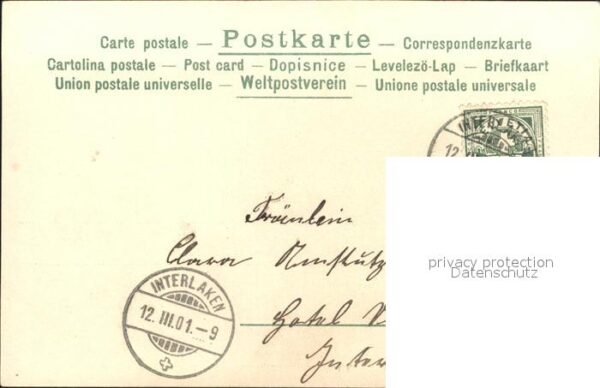 Carte postale — Postkarte — Correspondenzkarte
Cartolina postale — Post card — Dopisnice — Levelező-Lap — Briefkaart
Union postale universelle — Weltpostverein — Unione postale universale
12. III
Fräulein
Clara Amstutz
privacy protection
Datenschutz
INTERLAKEN
12. III. 01. — 9
Hotel
Inter